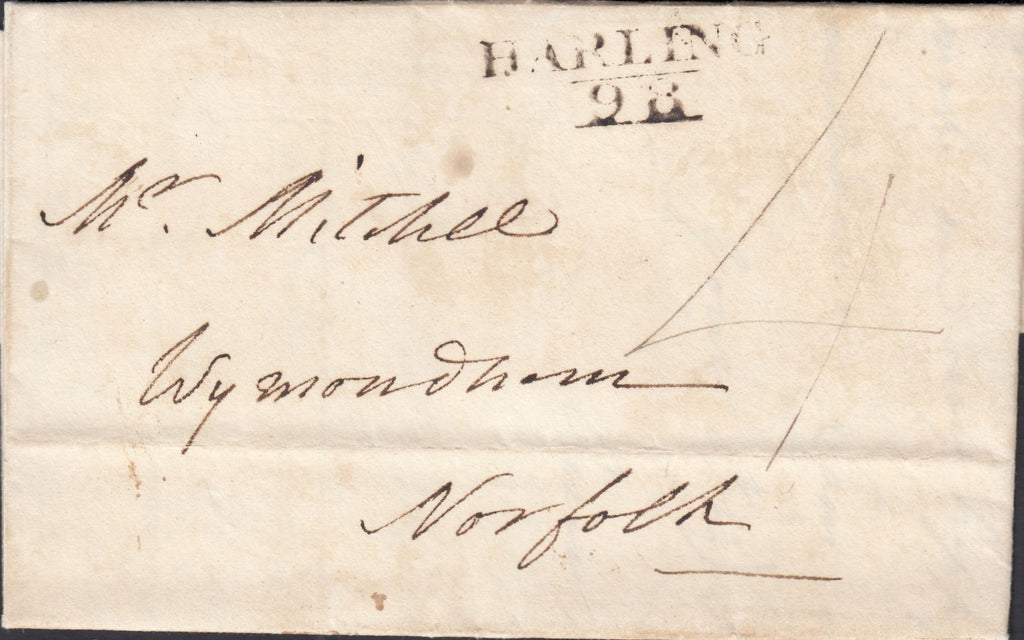 HARLING
98
Mr. Mitchell
4
Wymondham
Norfolk